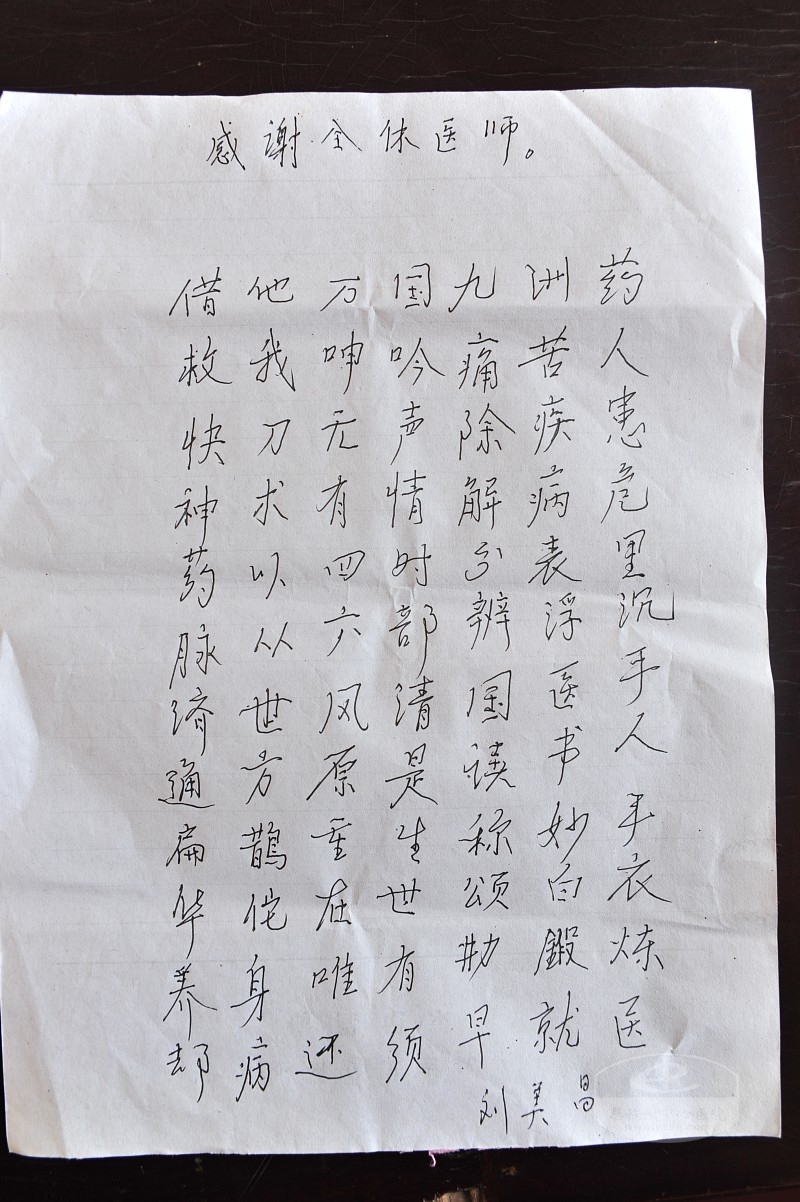 感谢全休医师。
借他万国九洲药
救我呻吟痛苦人
快刀无声除疾患
神求有情解病危
药以四时分表里
脉从六部辨浮沉
济世风清国医手
通方原是读书人
扁鹊重生称妙手
华佗在世颂白衣
养身唯有勤锻炼
却病还须早就医
刘美昌